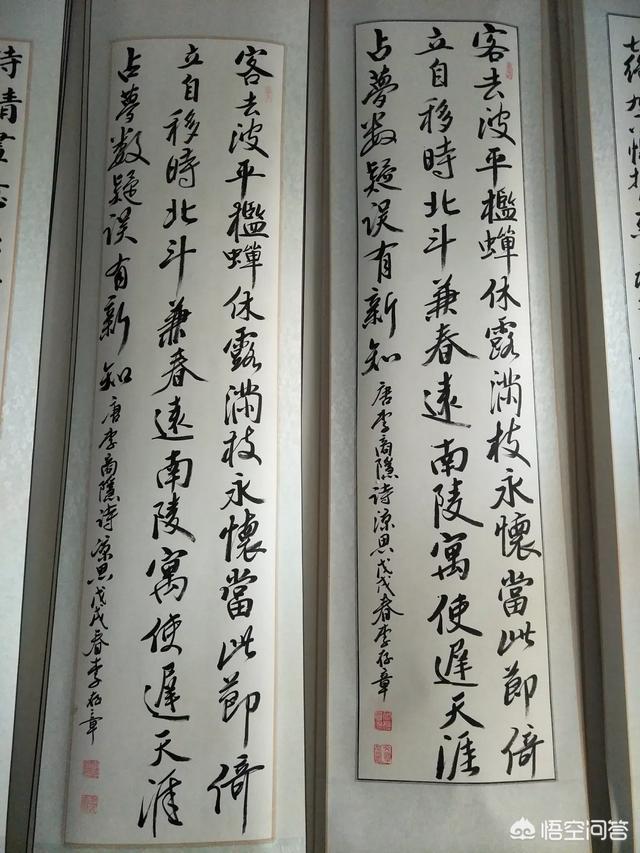 客去波平檻蟬休露滿枝永懷當此節倚
立自移時北斗兼春遠南陵寓使遲天涯
占夢数疑误有新知
唐李商隱诗凉思戊戌春李存章
客去波平檻蟬休露滿枝永懷當此節倚
立自移時北斗兼春遠南陵寓使遲天涯
占夢数疑误有新知
唐李商隱诗凉思戊戌春李存章
诗情畫意
悟空问答